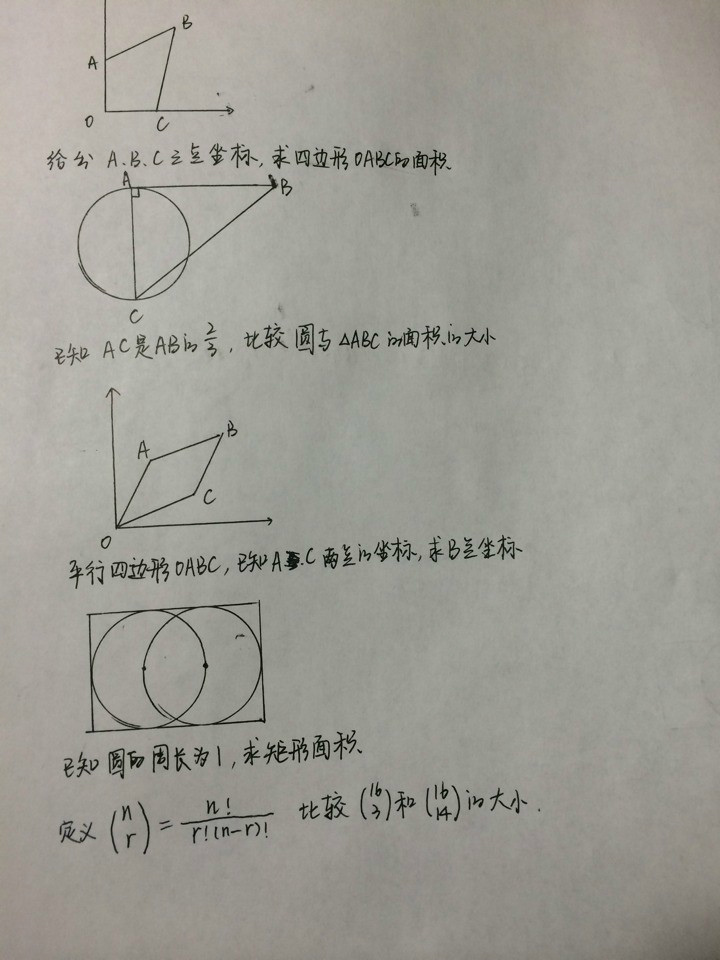 B
A
O
C
给出 A.B.C三点坐标,求四边形OABC的面积.
A
B
C
已知 AC是AB的2/3,比较圆与△ABC的面积的大小
B
A
C
O
平行四边形OABC,已知A.C两点的坐标,求B点坐标
已知圆的周长为1,求矩形面积.
定义 (n r) = n!/r!(n-r)! 比较 (16 3) 和 (16 14) 的大小.